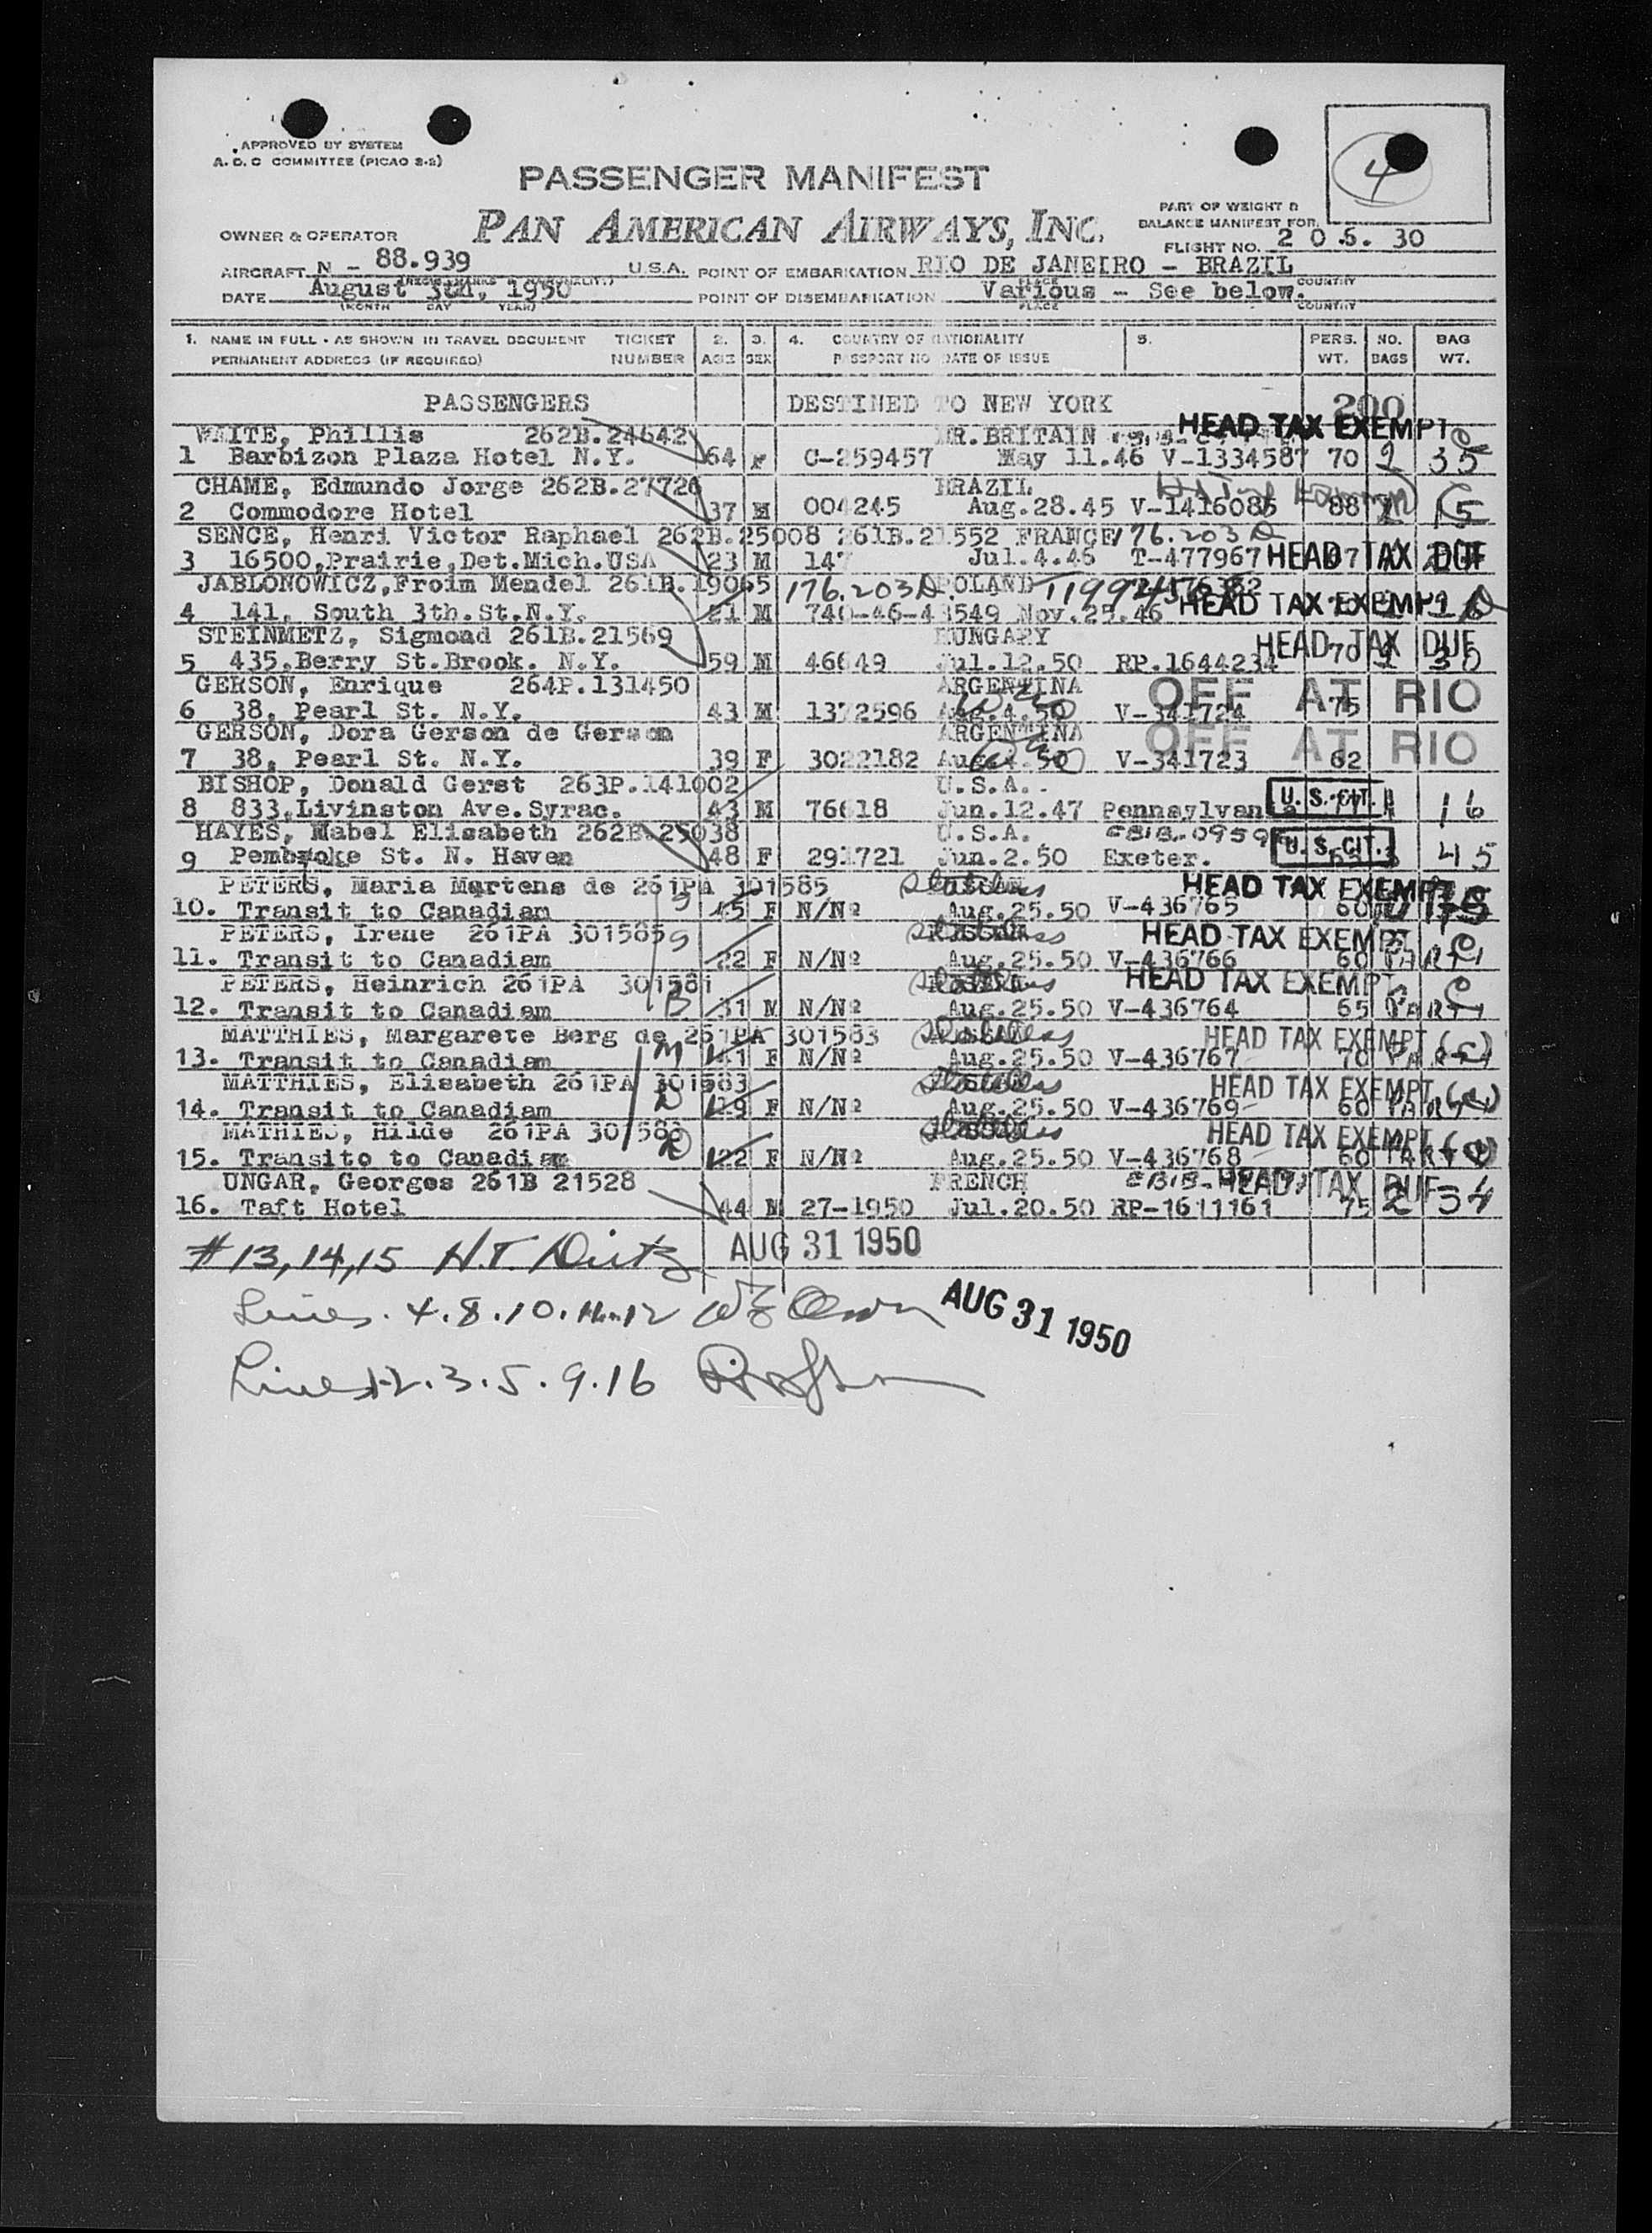 APPROVED BY SYSTEM
A. O. C COMMITTEE (PICAO 2-2)
4
PASSENGER MANIFEST
PAN AMERICAN AIRWAYS, INC.
PART OF WEIGHT &
BALANCE MANIFEST FOR
FLIGHT NO. 2 0 5. 30
OWNER & OPERATOR
AIRCRAFT N - 88.939 U.S.A. POINT OF EMBARKATION RIO DE JANEIRO - BRAZIL
DATE August 1950 POINT OF DISEMBARKATION Various - See below.
(MONTH DAY YEAR) PLACE COUNTRY
1. NAME IN FULL - AS SHOWN IN TRAVEL DOCUMENT TICKET 2. 3. 4. COUNTRY OF NATIONALITY 5. PERS. NO. BAG
PERMANENT ADDRESS (IF REQUIRED) NUMBER AGE SEX PASSPORT NO DATE OF ISSUE WT. BAGS WT.
PASSENGERS DESTINED TO NEW YORK 200
WAITE, Phillis 262B.24642 GR.BRITAIN HEAD TAX EXEMPT
1 Barbizon Plaza Hotel N.Y. 64 F C-259457 May 11.46 V-1334587 70 2 35
CHAME, Edmundo Jorge 262B.27726 BRAZIL
2 Commodore Hotel 37 M 004245 Aug.28.45 V-1416085 88 15
SENCE, Henri Victor Raphael 262B.25008 261B.21552 FRANCE 176.203 D
3 16500,Prairie,Det.Mich.USA 23 M 147 Jul.4.46 T-477967 HEAD TAX DUE
JABLONOWICZ,Froim Mendel 261B.19065 176.203 D POLAND
4 141, South 3th.St.N.Y. 21 M 740-46-43549 Nov.25.46 HEAD TAX EXEMPT
STEINMETZ, Sigmond 261B.21569 HUNGARY HEAD TAX DUE
5 435,Berry St.Brook. N.Y. 59 M 46649 Jul.12.50 RP.1644234 70 30
GERSON, Enrique 264P.131450 ARGENTINA OFF AT RIO
6 38, Pearl St. N.Y. 43 M 1372596 Aug.4.50 V-341724 75
GERSON, Dora Gerson de Gerson ARGENTINA OFF AT RIO
7 38, Pearl St. N.Y. 39 F 3022182 Aug.4.50 V-341723 62
BISHOP, Donald Gerst 263P.141002 U.S.A.
8 833,Livinston Ave.Syrac. 43 M 76618 Jun.12.47 Pennsylvan U.S.CIT. 16
HAYES, Mabel Elisabeth 262B.25038 U.S.A.
9 Pembroke St. N. Haven 48 F 291721 Jun.2.50 Exeter. U.S.CIT. 45
PETERS, Maria Martens de 261PA 301585 Stateless HEAD TAX EXEMPT
10. Transit to Canadiam 45 F N/Nº Aug.25.50 V-436765 60
PETERS, Irene 261PA 301585 Stateless HEAD TAX EXEMPT
11. Transit to Canadiam 22 F N/Nº Aug.25.50 V-436766 60
PETERS, Heinrich 261PA 301581 Stateless HEAD TAX EXEMPT
12. Transit to Canadiam 31 M N/Nº Aug.25.50 V-436764 65
MATTHIES, Margarete Berg de 261PA 301583 Stateless HEAD TAX EXEMPT (C)
13. Transit to Canadiam F N/Nº Aug.25.50 V-436767 70
MATTHIES, Elisabeth 261PA 301583 Stateless HEAD TAX EXEMPT
14. Transit to Canadiam 19 F N/Nº Aug.25.50 V-436769 60
MATHIES, Hilde 261PA 301583 Stateless HEAD TAX EXEMPT
15. Transito to Canadiam 22 F N/Nº Aug.25.50 V-436768 60
UNGAR, Georges 261B 21528 FRENCH HEAD TAX DUE
16. Taft Hotel 44 M 27-1950 Jul.20.50 RP-1611161 75 2 34
#13,14,15 H.T. AUG 31 1950
Lines. 4.8.10.11.12 AUG 31 1950
Lines 1.2.3.5.9.16